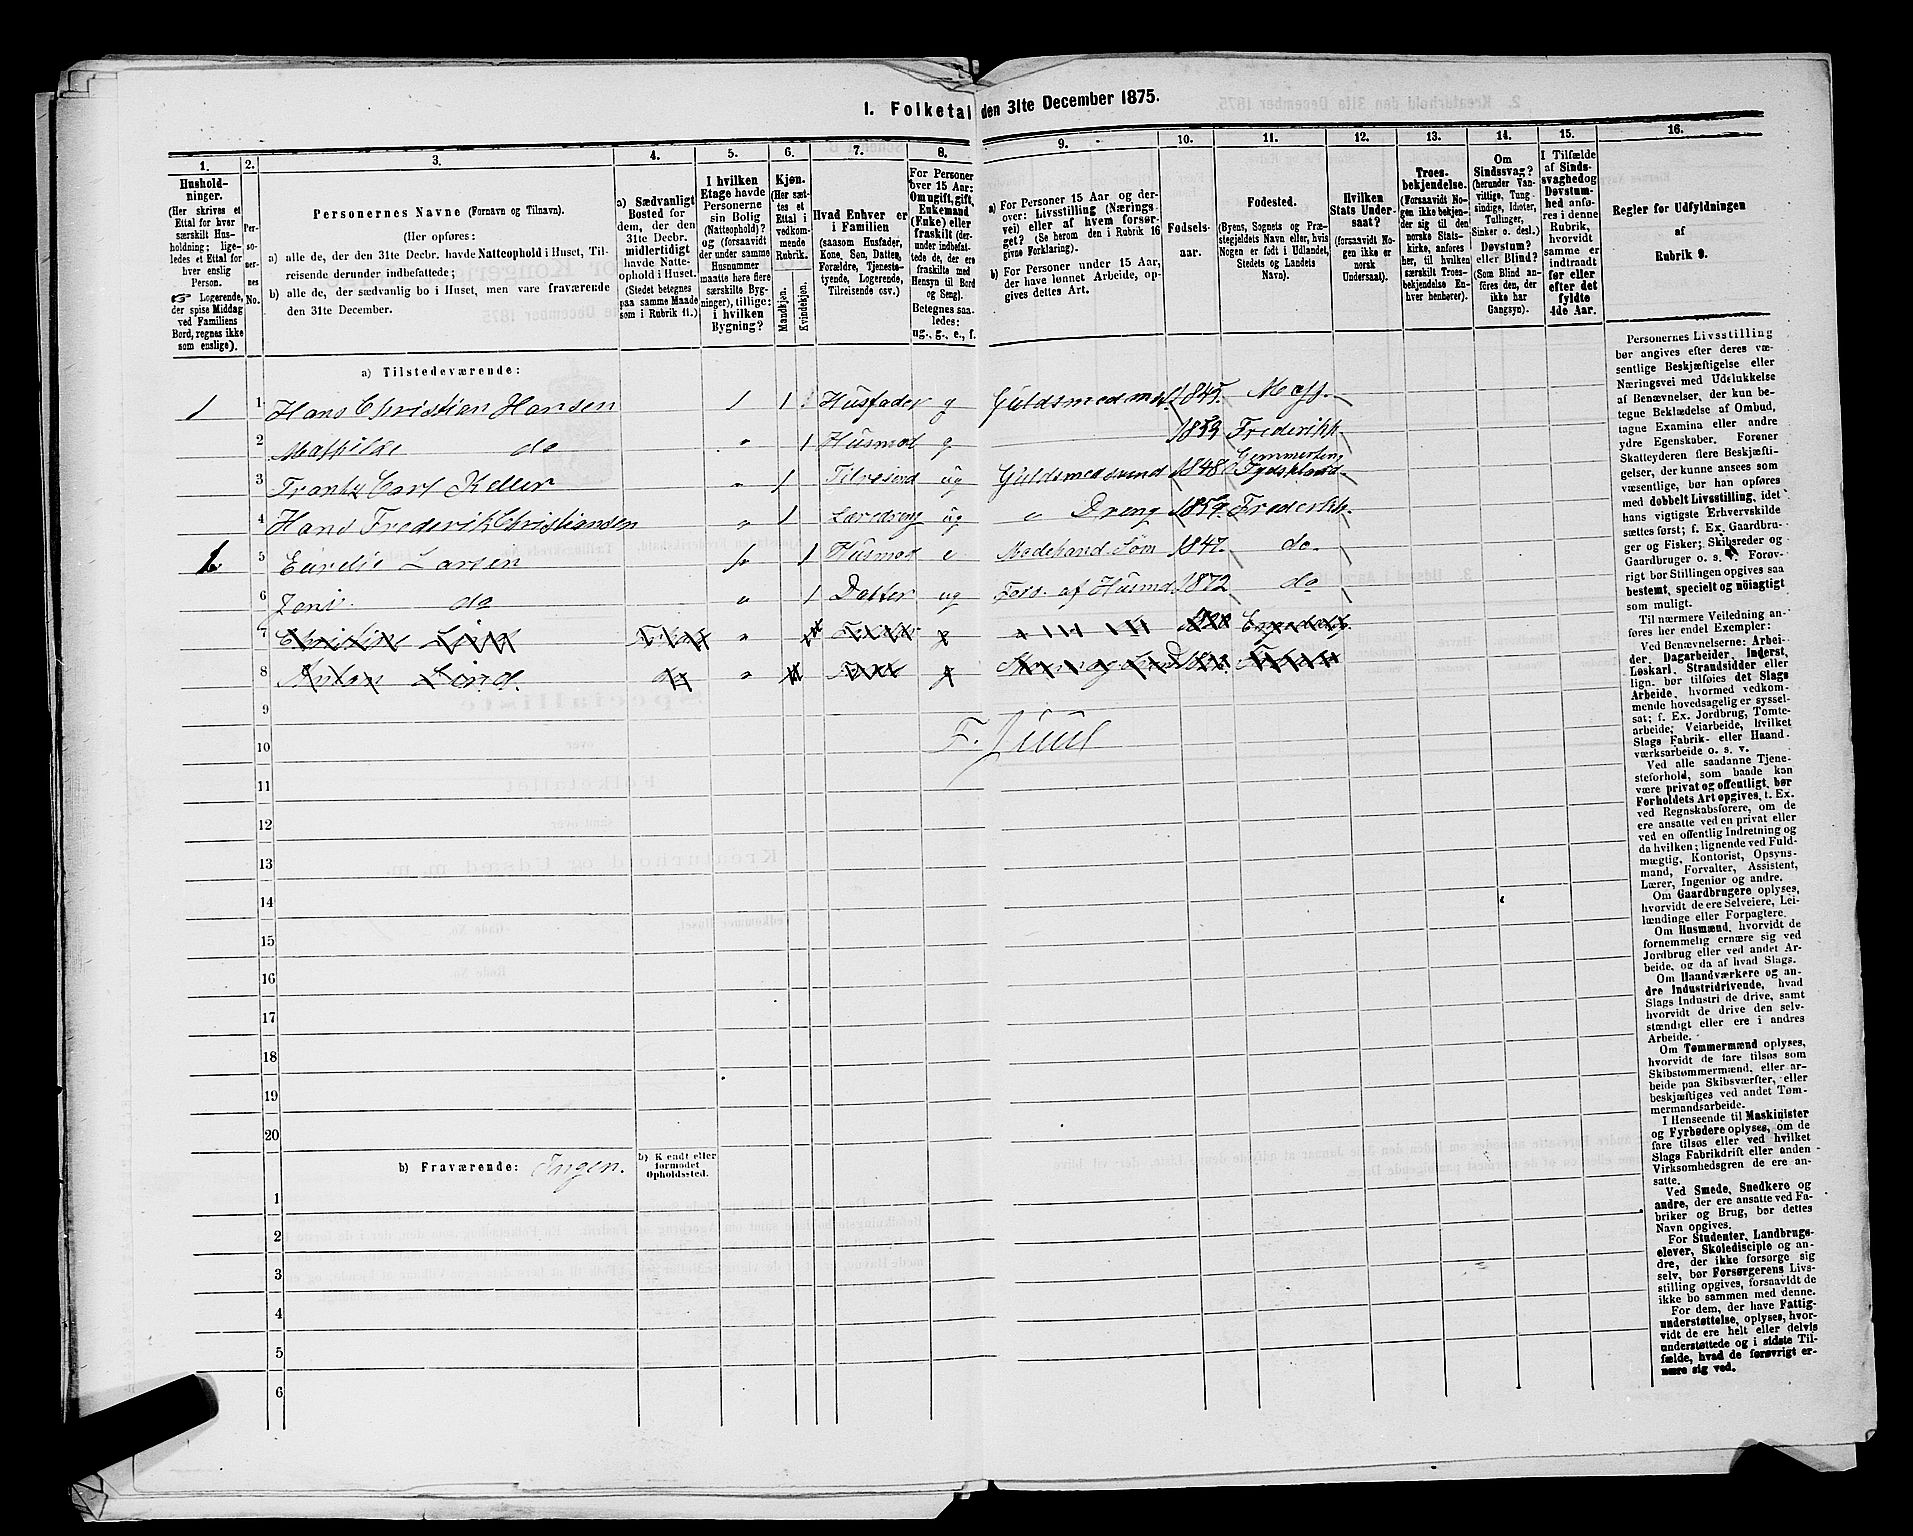 1. Folketal den 31te December 1875.
1. 2. 3. 4. 5. 6. 7. 8. 9. 10. 11. 12. 13. 14. 15. 16.
Husholdninger.
(Her skrives et Ettal for hver særskilt Husholdning; ligeledes et Ettal for hver enslig Person.
☞ Logerende, der spise Middag ved Familiens Bord, regnes ikke som enslige).
Personernes No.
Personernes Navne (Fornavn og Tilnavn).
(Her opføres:
a) alle de, der den 31te Decbr. havde Natteophold i Huset, Tilreisende derunder indbefattede;
b) alle de, der sædvanlig bo i Huset, men vare fraværende den 31te December.
a) Sædvanligt Bosted for dem, der den 31te Decbr. midlertidigt havde Natteophold i Huset. (Stedet betegnes paa samme Maade som i Rubrik 11.)
I hvilken Etage havde Personerne sin Bolig (Natteophold)? og (forsaavidt der under samme Husnummer maatte høre flere særskilte Bygninger), tillige: i hvilken Bygning?
Kjøn. (Her sættes et Ettal i vedkommende Rubrik.
Mandkjøn. Kvindekjøn.
Hvad Enhver er i Familien
(saasom Husfader, Kone, Søn, Datter, Forældre, Tjenestetyende, Logerende, Tilreisende osv.)
For Personer over 15 Aar: Om ugift, gift, Enkemand (Enke) eller fraskilt (derunder indbefattede de, der ere fraskilte med Hensyn til Bord og Seng). Betegnes saaledes: ug., g., e., f.
a) For Personer 15 Aar og derover: Livsstilling (Næringsvei) eller af hvem forsørget? (Se herom den i Rubrik 16 givne Forklaring).
b) For Personer under 15 Aar, der have lønnet Arbeide, opgives dettes Art.
Fødselsaar.
Fødested.
(Byens, Sognets og Præstegjeldets Navn eller, hvis Nogen er født i Udlandet, Stedets og Landets Navn).
Hvilken Stats Undersaat?
(forsaavidt Nogen ikke er norsk Undersaat).
Troesbekjendelse.
(Forsaavidt Nogen ikke bekjender sig til den norske Statskirke, anføres her, til hvilken særskilt Troesbekjendelse Enhver henhører).
Om Sindssvag? (herunder Vanvittige, Tungsindige, Idioter, Tullinger, Sinker o. desl.) Døvstum? eller Blind? (Som Blind anføres den, der ikke har Gangsyn).
I Tilfælde af Sindssvaghed og Døvstumhed anføres i denne Rubrik, hvorvidt samme er indtraadt før eller efter det fyldte 4de Aar.
Regler for Udfyldningen af Rubrik 9.
a) Tilstedeværende:
1 1 Hans Christian Hansen 1 1 Husfader g Guldsmedmst. 1845. Moss.
2 Mathilde do " 1 Husmod g 1853 Frederikh.
3 Frantz Carl Keller " 1 Tilreisend ug Guldsmedsvend 1848 Tydskland
4 Hans Frederik Christiansen " 1 Læredreng ug " Dreng 1859. Frederikh.
5 Larsen 1 Husmod e Modehand. Søm 1847. do.
6 do " 1 Datter ug Fors. af Husmd. 1872 do
7 Christine Lind " g
8 Anton Lind. do " g
9
10 F. Juul
11
12
13
14
15
16
17
18
19
20
b) Fraværende: Ingen.
b) Kjendt eller formodet Opholdssted.
1
2
3
4
5
6
Personernes Livsstilling bør angives efter deres væsentlige Beskjæftigelse eller Næringsvei med Udelukkelse af Benævnelser, der kun betegne Beklædelse af Ombud, tagne Examina eller andre ydre Egenskaber. Forener Skatteyderen flere Beskjæftigelser, der kunne ansees som væsentlige, bør han opføres med dobbelt Livsstilling, idet hans vigtigste Erhvervskilde sættes først; f. Ex. Gaardbruger og Fisker; Skibsreder og Gaardbruger o. s. v. Forøvrigt bør Stillingen opgives saa bestemt, specielt og nøiagtigt som muligt.
Til nærmere Veiledning anføres her endel Exempler:
Ved Benævnelserne: Arbeider, Dagarbeider, Inderst, Løskarl, Strandsidder eller lign. bør tilføies det Slags Arbeide, hvormed vedkommende hovedsagelig er sysselsat; f. Ex. Jordbrug, Tomtearbeide, Veiarbeide, hvilket Slags Fabrik- eller Haandværksarbeide o. s. v.
Ved alle saadanne Tjenesteforhold, som baade kan være privat og offentligt, bør Forholdets Art opgives, t. Ex. ved Regnskabsførere, om de ere ansatte ved en privat eller ved en offentlig Indretning og da hvilken; lignende ved Fuldmægtig, Kontorist, Opsynsmand, Forvalter, Assistent, Lærer, Ingeniør og andre.
Om Gaardbrugere oplyses, hvorvidt de ere Selveiere, Leilændinge eller Forpagtere.
Om Husmænd, hvorvidt de fornemmelig ernære sig ved Jordbrug eller ved andet Arbeide, og da af hvad Slags.
Om Haandværkere og andre Industridrivende, hvad Slags Industri de drive, samt hvorvidt de drive den selvstændigt eller ere i andres Arbeide.
Om Tømmermænd oplyses, hvorvidt de fare tilsøs som Skibstømmermænd, eller arbeide paa Skibsværfter, eller beskjæftiges ved andet Tømmermandsarbeide.
I Henseende til Maskinister og Fyrbødere oplyses, om de fare tilsøs eller ved hvilket Slags Fabrikdrift eller anden Virksomhedsgren de ere ansatte.
Ved Smede, Snedkere og andre, der ere ansatte ved Fabriker og Brug, bør dettes Navn opgives.
For Studenter, Landbrugselever, Skoledisciple og andre, der ikke forsørge sig selv, bør Forsørgerens Livsstilling opgives, forsaavidt de ikke bo sammen med denne.
For dem, der have Fattigunderstøttelse, oplyses, hvorvidt de ere helt eller delvis understøttede og i sidste Tilfælde, hvad de forøvrigt ernære sig ved.